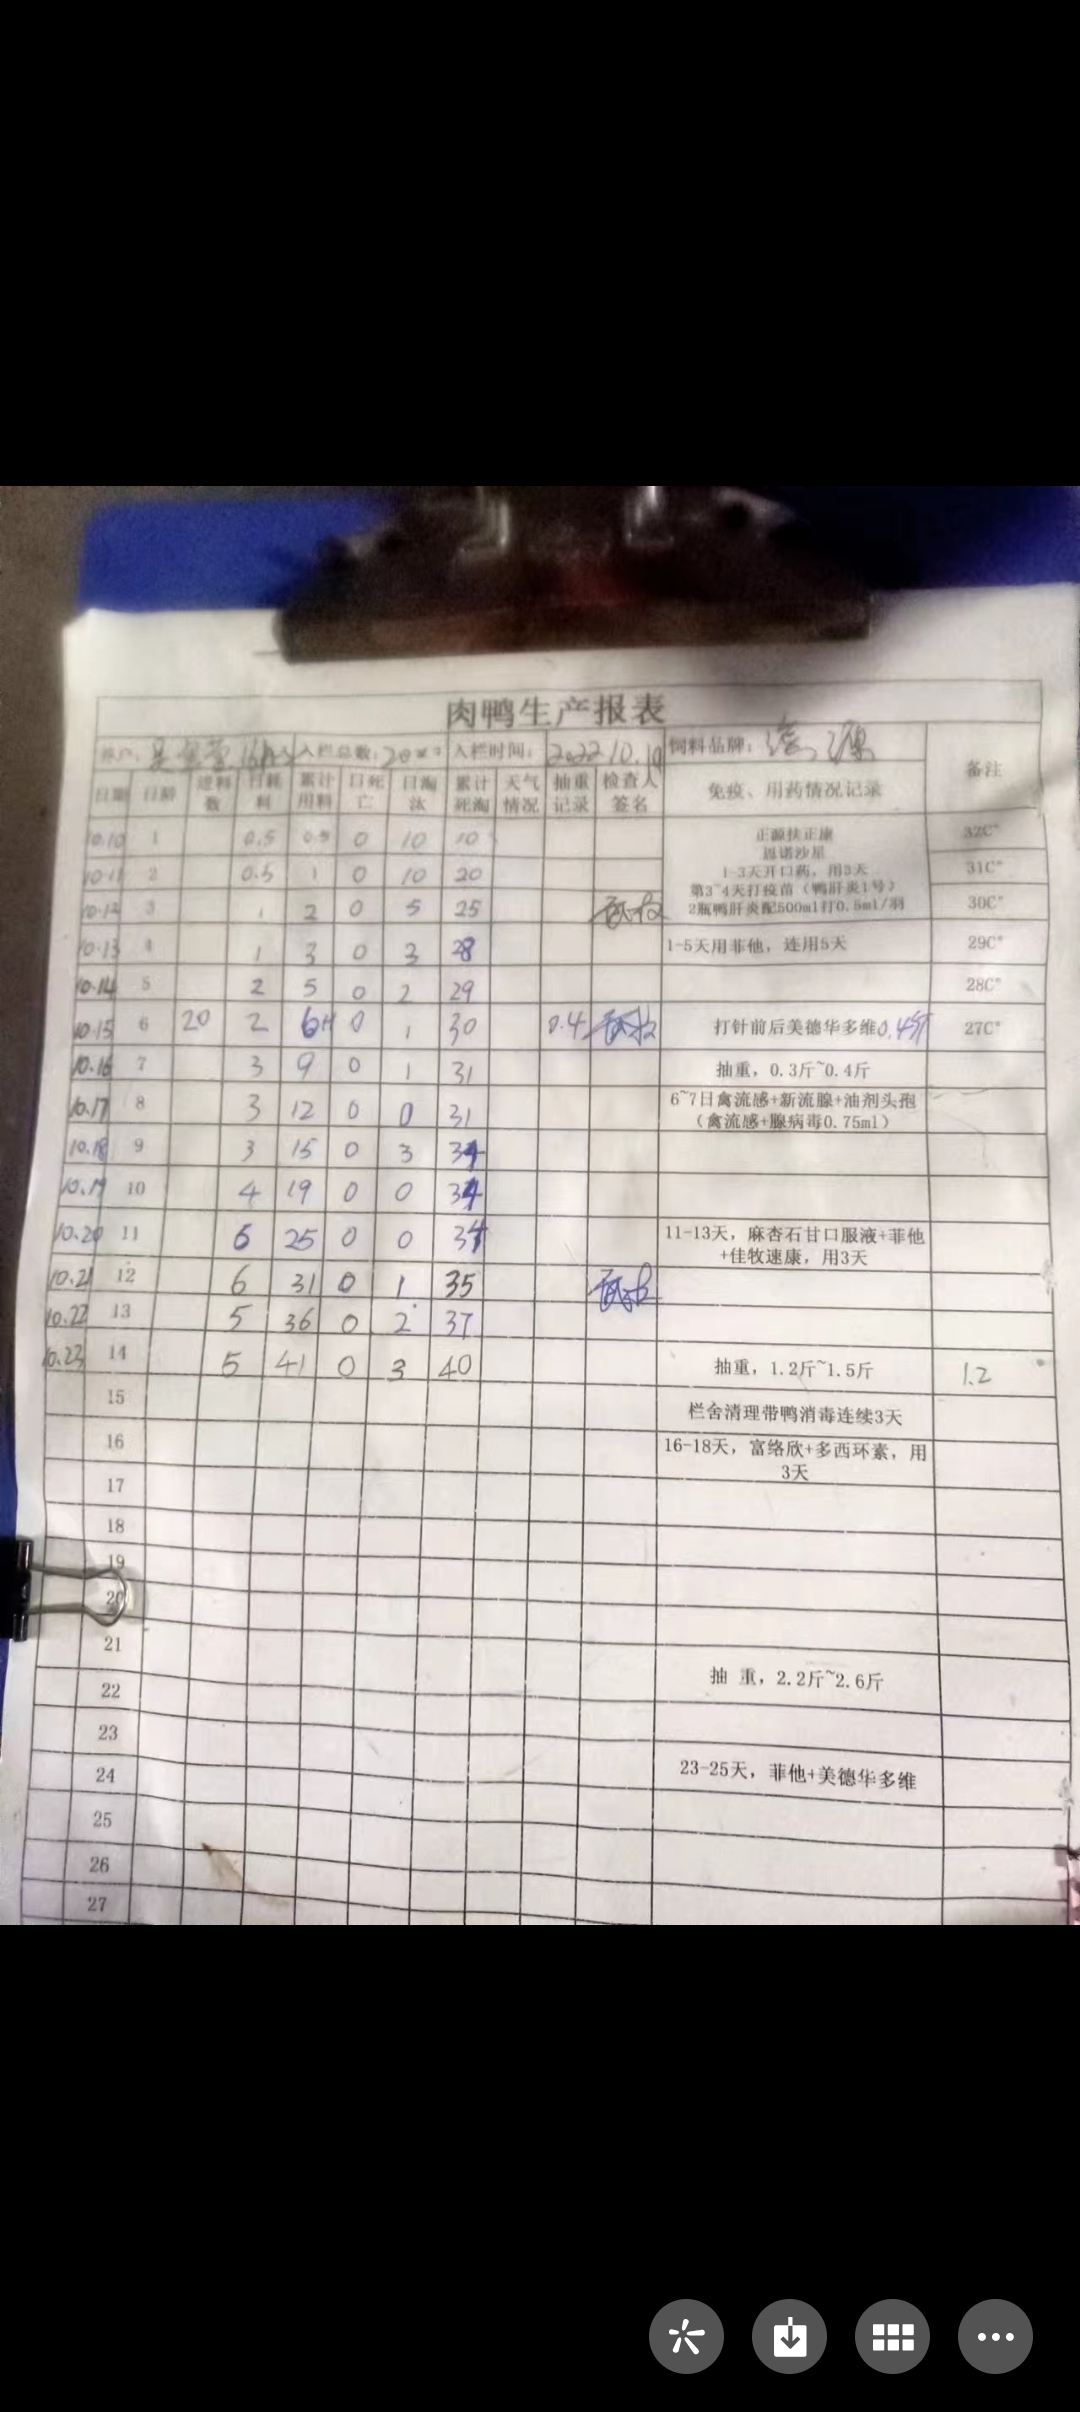 肉鸭生产报表
入栏总数：20 入栏时间：2022.10.10 饲料品牌：
日期 日龄 进料数 日耗料 累计用料 日死亡 日淘汰 累计死淘 天气情况 抽重记录 检查人签名 免疫、用药情况记录 备注
10.10 1 0.5 0.5 0 10 10 正源扶正康 32C°
恩诺沙星
10.11 2 0.5 1 0 10 20 1-3天开口药，用3天 31C°
第3~4天打疫苗（鸭肝炎1号）
10.12 3 1 2 0 5 25 2瓶鸭肝炎配500ml打0.5ml/羽 30C°
10.13 4 1 3 0 3 28 1-5天用菲他，连用5天 29C°
10.14 5 2 5 0 2 29 28C°
10.15 6 20 2 6 0 1 30 0.4 打针前后美德华多维0.4斤 27C°
10.16 7 3 9 0 1 31 抽重，0.3斤~0.4斤
10.17 8 3 12 0 0 31 6~7日禽流感+新流腺+油剂头孢
（禽流感+腺病毒0.75ml）
10.18 9 3 15 0 3 34
10.19 10 4 19 0 0 34
10.20 11 6 25 0 0 34 11-13天，麻杏石甘口服液+菲他
+佳牧速康，用3天
10.21 12 6 31 0 1 35
10.22 13 5 36 0 2 37
10.23 14 5 41 0 3 40 抽重，1.2斤~1.5斤 1.2
15 栏舍清理带鸭消毒连续3天
16 16-18天，富络欣+多西环素，用
3天
17
18
19
20
21
22 抽 重，2.2斤~2.6斤
23
24 23-25天，菲他+美德华多维
25
26
27